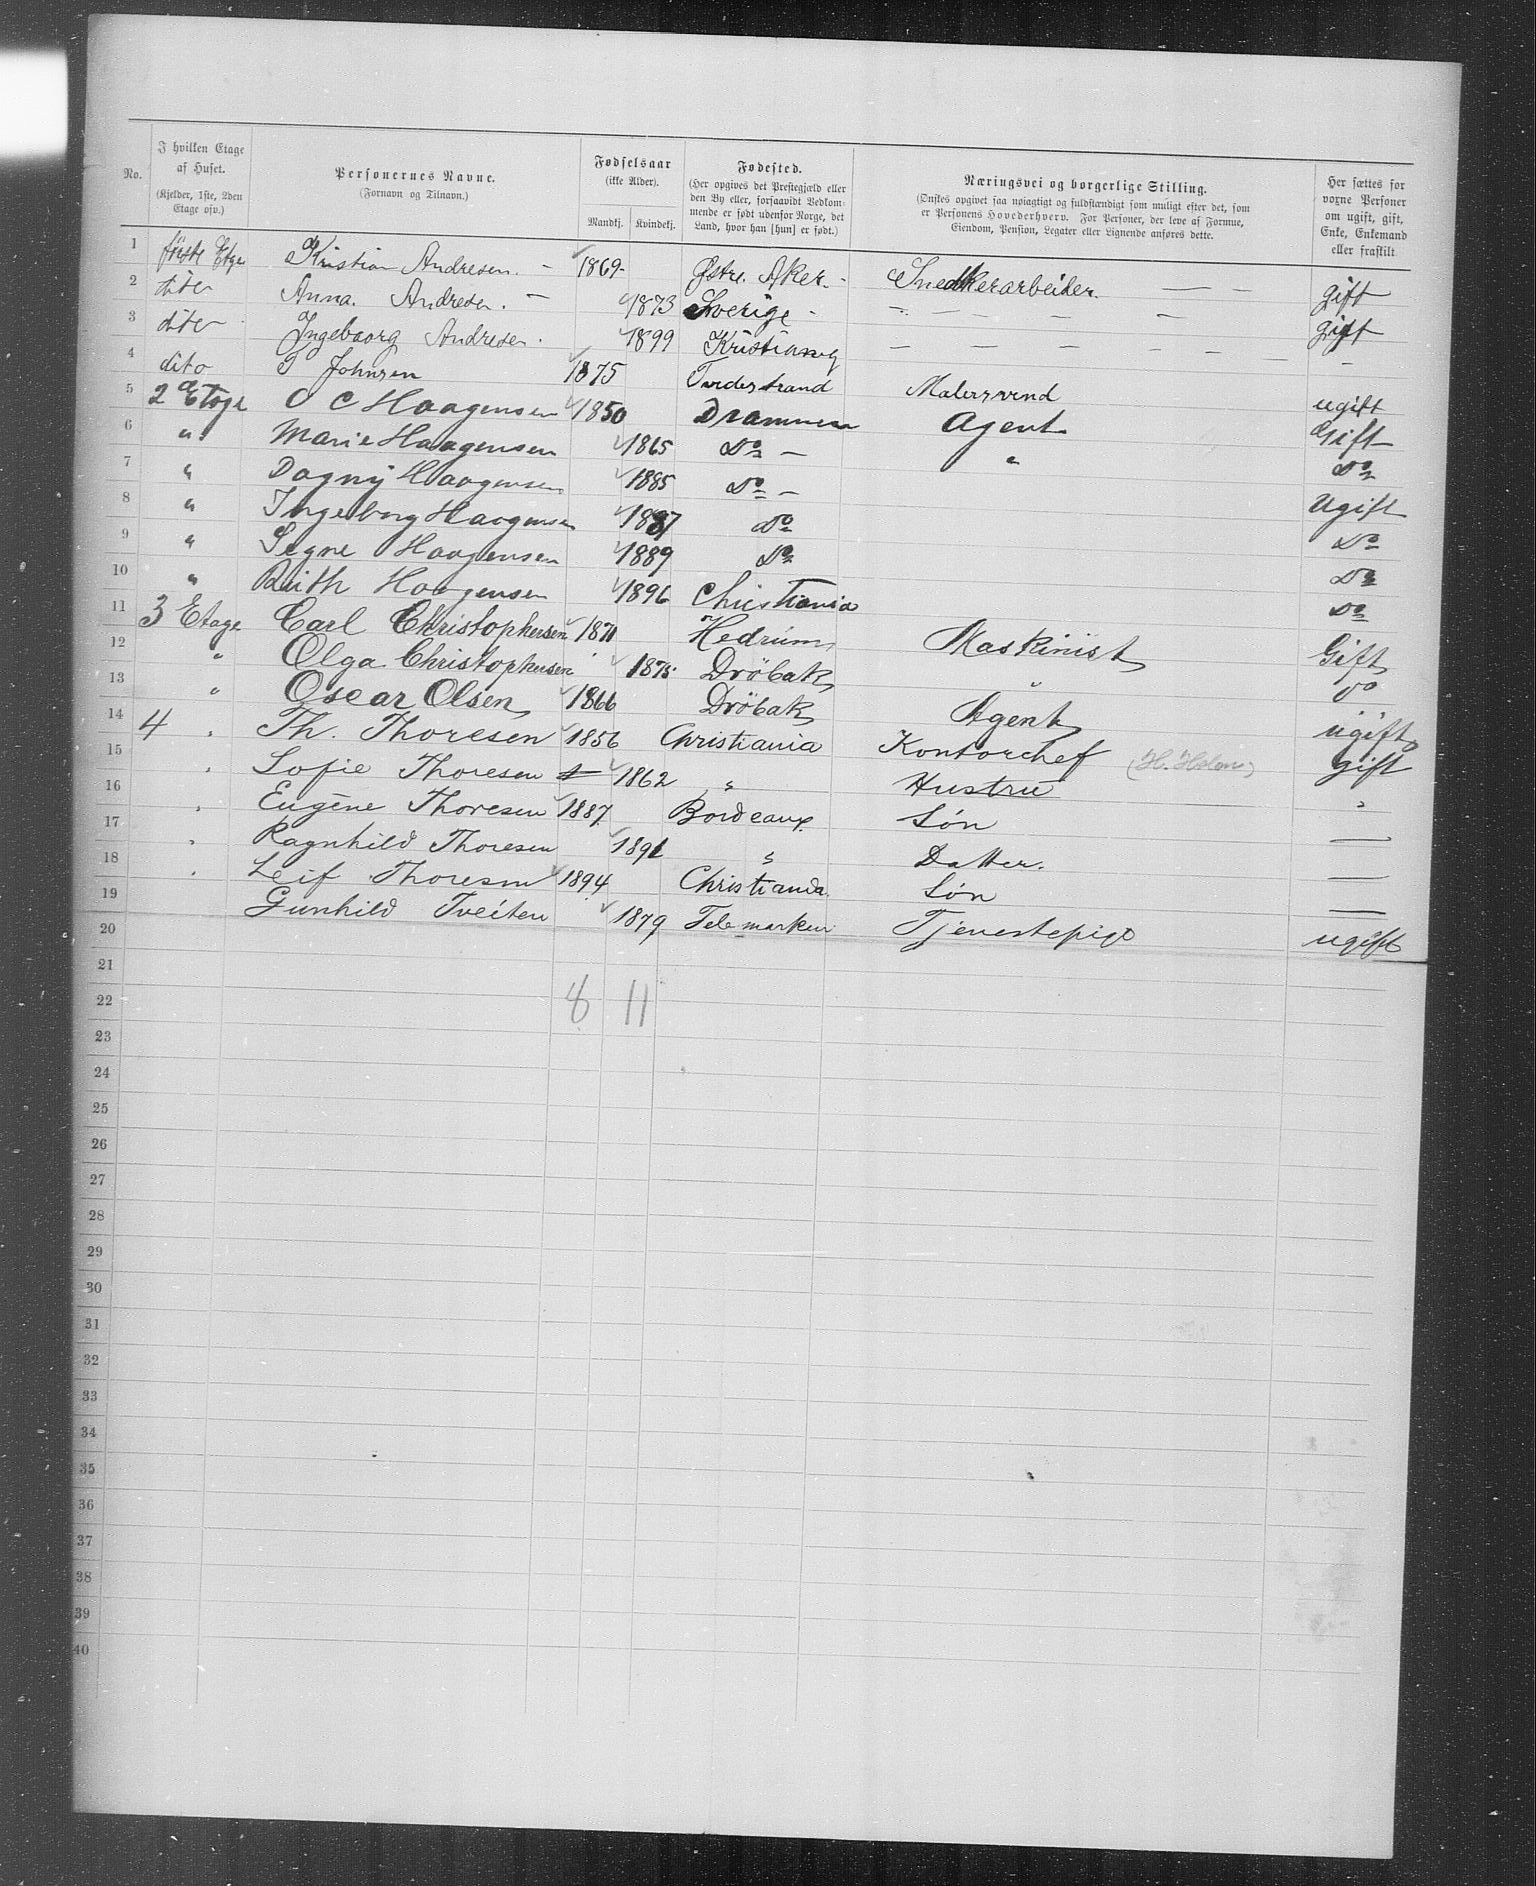 No. | I hvilken Etage af Huset. (Kjelder, 1ste, 2den Etage osv.) | Personernes Navne. (Fornavn og Tilnavn.) | Fødselsaar (ikke Alder). Mandkj. | Kvindekj. | Fødested. (Her opgives det Prestegjæld eller den By eller, forsaavidt Vedkommende er født udenfor Norge, det Land, hvor han [hun] er født.) | Næringsvei og borgerlige Stilling. (Ønskes opgivet saa nøiagtigt og fuldstændigt som muligt efter det, som er Personens Hovederhverv. For Personer, der leve af Formue, Eiendom, Pension, Legater eller Lignende anføres dette. | Her sættes for voxne Personer om ugift, gift, Enke, Enkemand eller fraskilt
1 förste Etge Kristian Andresen. – 1869- Østre. Aker. – Snedkerarbeider. — — gift
2 dito Anna. Andresen. – 1873 Sverige – – – – – – gift
3 dito Ingebaorg Andresen. 1899 Kristiania – – – – – – –
4 dito T Johnsen 1875 Tvedestrand Malersvend ugift
5 2 Etage O C Haagensen 1850 Drammen Agent Gift
6 " Marie Haagensen 1865 Do – " Do
7 " Dagny Haagensen 1885 Do – Ugift
8 " Ingeborg Haagensen 1887 Do Do
9 " Segne Haagensen 1889 Do Do
10 " Ruith Haagensen 1896 Christiania Do
11 3 Etage Carl Christophersen 1871 Hedrum Maskinist Gift
12 " Olga Christophersen 1875 Dröbak " Do
13 " Oscar Olsen 1866 Dröbak Agent ugift
14 4 " Th. Thoresen 1856 Christiania Kontorchef gift
15 " Sofie Thoresen 1862 " Hustru "
16 " Eugène Thoresen 1887 Bordeaux Søn —
17 " Ragnhild Thoresen 1891 " Datter. —
18 " Leif Thoresen 1894 Christiania Søn —
19 Gunhild Tveiten 1879 Telemarken Tjenestepige ugift
20
21
22 8 11
23
24
25
26
27
28
29
30
31
32
33
34
35
36
37
38
39
40